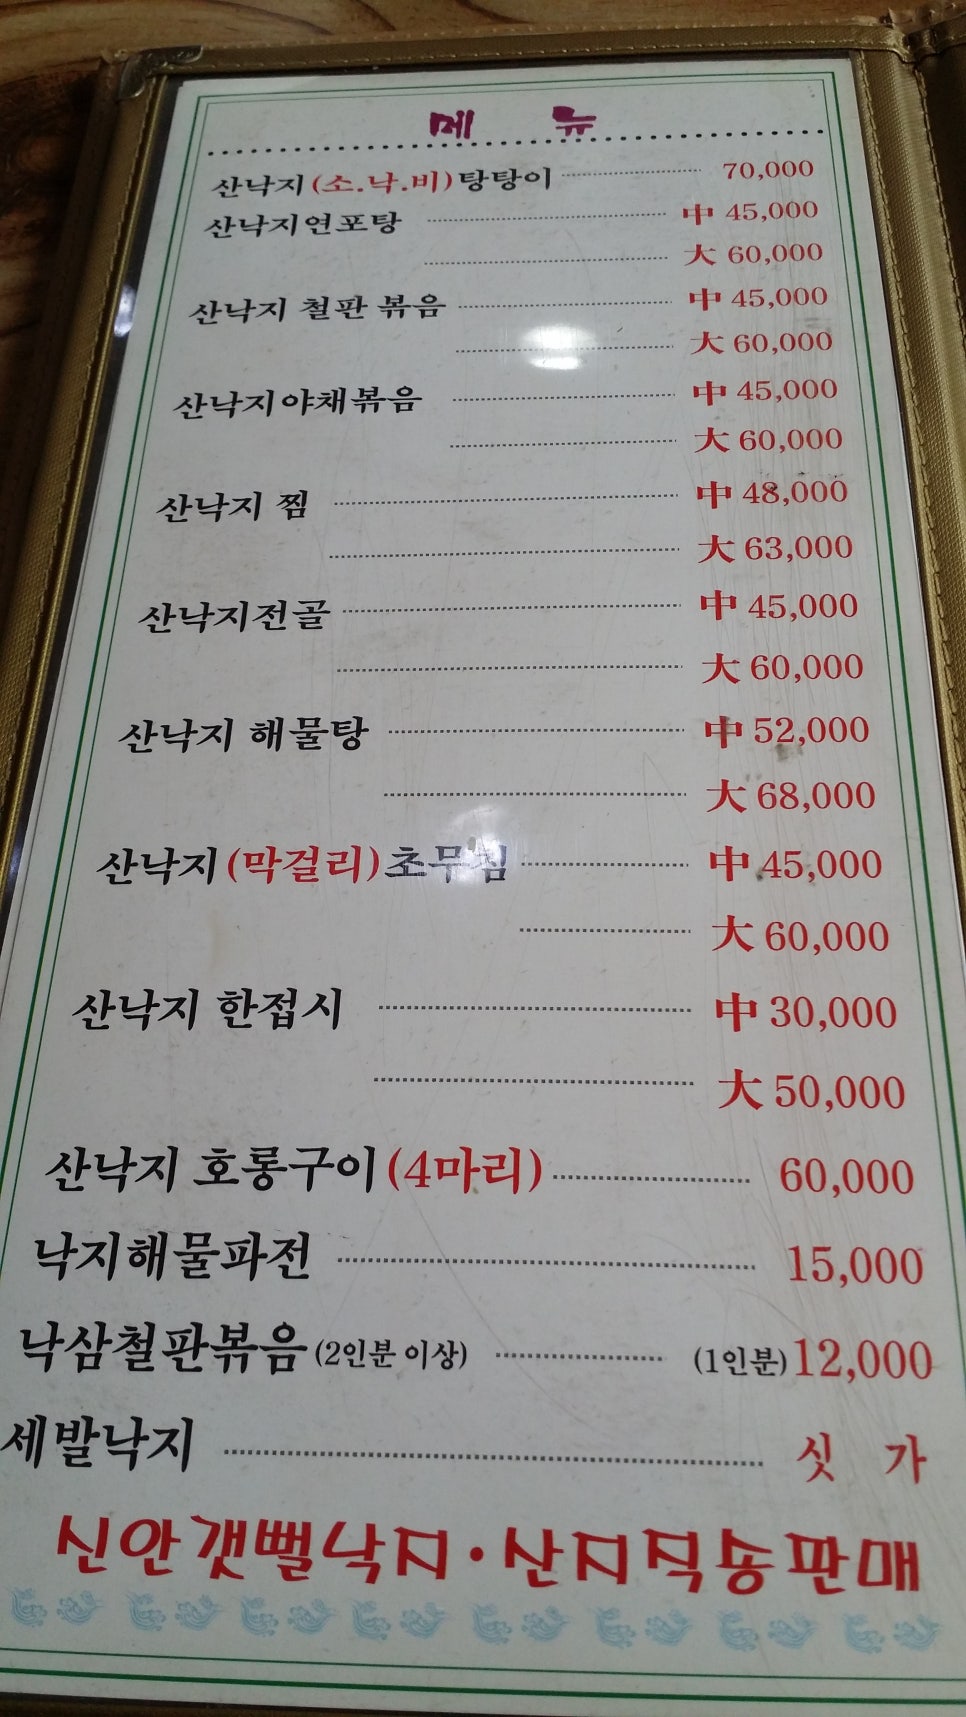 메 뉴
산낙지(소.낙.비)탕탕이 70,000
산낙지연포탕 中 45,000
大 60,000
산낙지 철판 볶음 中 45,000
大 60,000
산낙지야채볶음 中 45,000
大 60,000
산낙지 찜 中 48,000
大 63,000
산낙지전골 中 45,000
大 60,000
산낙지 해물탕 中 52,000
大 68,000
산낙지(막걸리)초무침 中 45,000
大 60,000
산낙지 한접시 中 30,000
大 50,000
산낙지 호롱구이(4마리) 60,000
낙지해물파전 15,000
낙삼철판볶음(2인분 이상) (1인분)12,000
세발낙지 싯 가
신안갯뻘낙지·산지직송판매